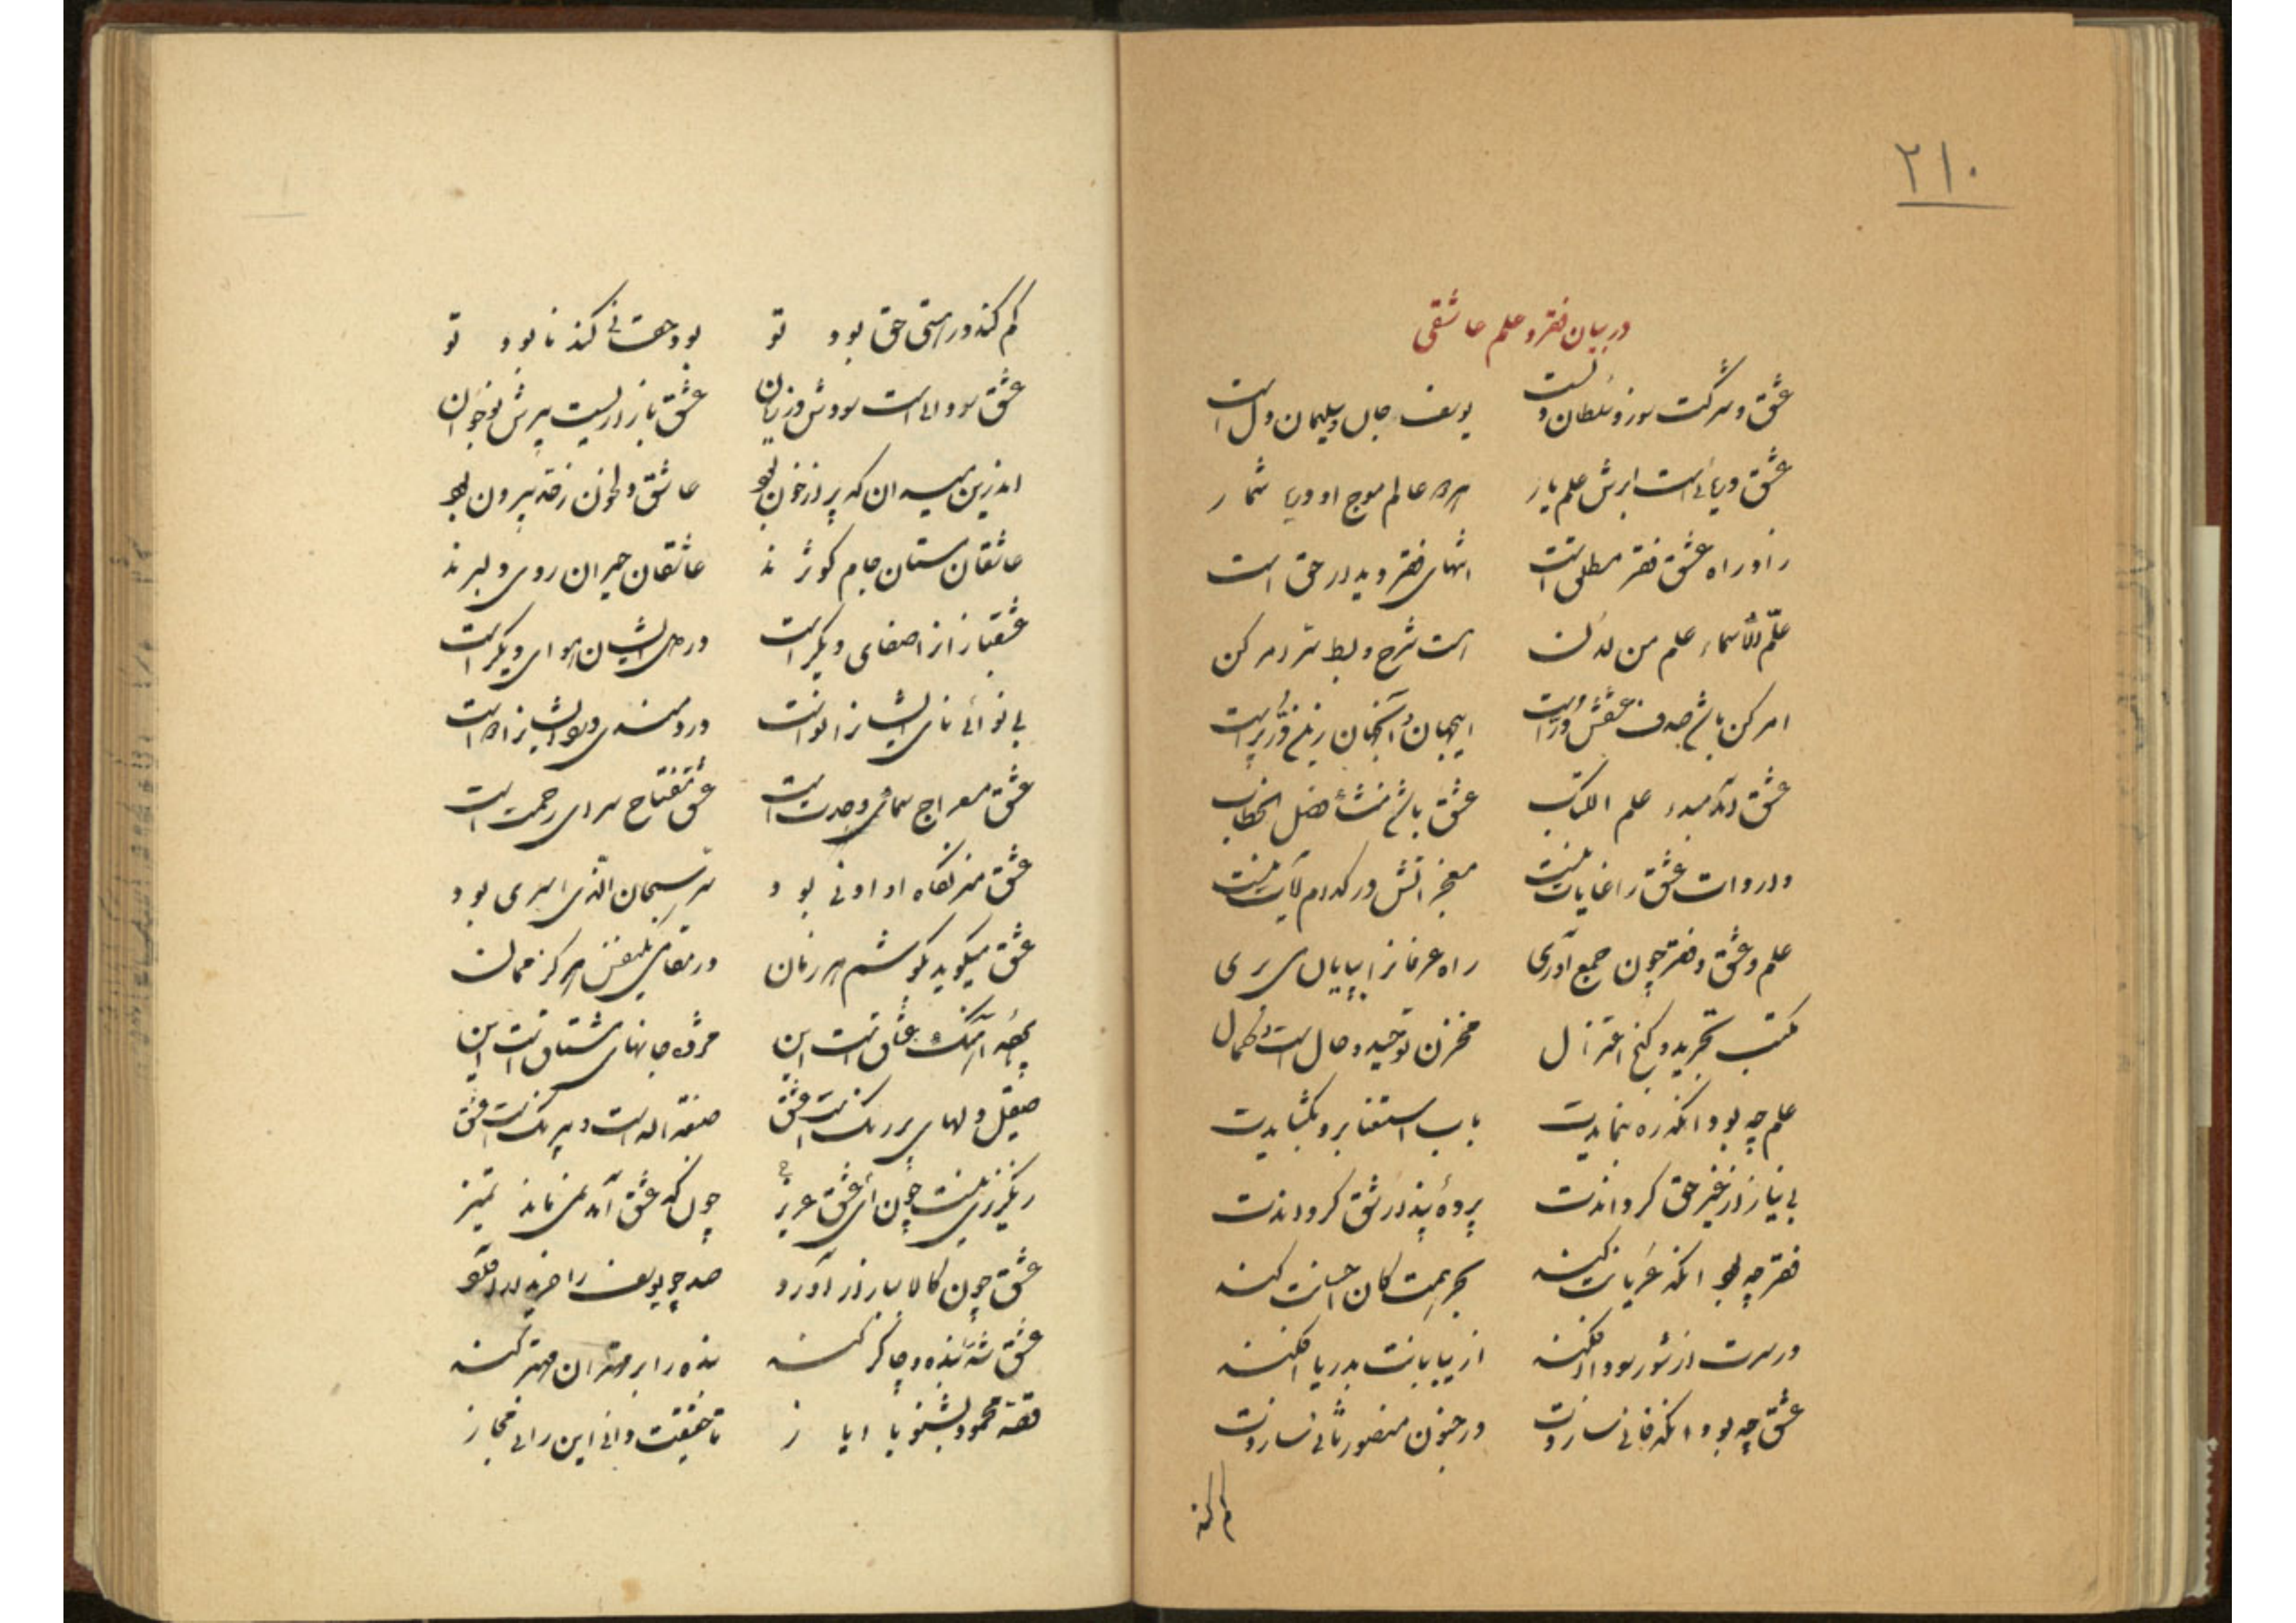 ۲۱۰
در بیان فقر و علم عاشقی
عشق و شرکت سوز و سلطان وشست یوسف جان و سلیمان دل است
عشق دریائیست ابرش علم یار هر دو عالم موج او دریا شمار
زاد راه عشق فقر مطلق است انتهای فقر دیدار حق است
علّم الاسماء علم من لدن است شرح و بسط سرّ امر کن
امر کن باشد صدف عشقش در است اینجهان و آنجهان زین در پر است
عشق آمد مبدء علم الکتاب عشق باشد منشأ فصل الخطاب
واردات عشق را غایات نیست معجزاتش در کدام آیات نیست
علم و عشق و فقر چون جمع آوری راه عرفانرا بپایان می بری
مکتب تجرید و کنج اعتزال مخزن توحید و حال است و کمال
علم چه بود آنکه ره بنمایدت باب استغنا برو بگشایدت
بی نیاز از غیر حق گرداندت پردهٔ پندار شق گرداندت
فقر چه بود آنکه عریانت کند بحر همت کان احسانت کند
در سرت از شور سودا افکند از بیابانت بدریا افکند
عشق چه بود آنکه فانی سازدت در جنون منصور ثانی سازدت
گم کند
گم کند در هستی حق بود تو بود حق هستی کند نابود تو
عشق سودائیست سودش در زیان عشق بازاریست پرش نوجوان
اندرین میدان که پر از خون بود عاشق دلخون زقه بیرون بود
عاشقان مستان جام کوثرند عاشقان حیران روی دلبرند
عشقبازانرا صفای دیگر است در دل ایشان هوای دیگر است
بی نوائی نای ایشانرا نواست دردمندی ایشانرا دواست
عشق معراج سمای وحدت است عشق مفتاح سرای رحمت است
عشق منزلگاه او ادنی بود سرّ سبحان الذی اسری بود
عشق میگوید بگوشم هر زمان در مقامی یکنفس هرگز ممان
چه آهنگ عشاق است این مژده جانهای مشتاق است این
صیقل دلهای پر رنگ است عشق صبغة الله است و بیرنگ است عشق
رنگرزی نیست چون ای عشق عزیز چونکه عشق آمد نمی ماند تمیز
عشق چون کالا ببازار آورد صد چو یوسف را خریدار آورد
عشق شه را بنده و چاکر کند بنده را بر مهتران مهتر کند
قصهٔ محمود بشنو با ایاز تا حقیقت دانی این را نی مجاز